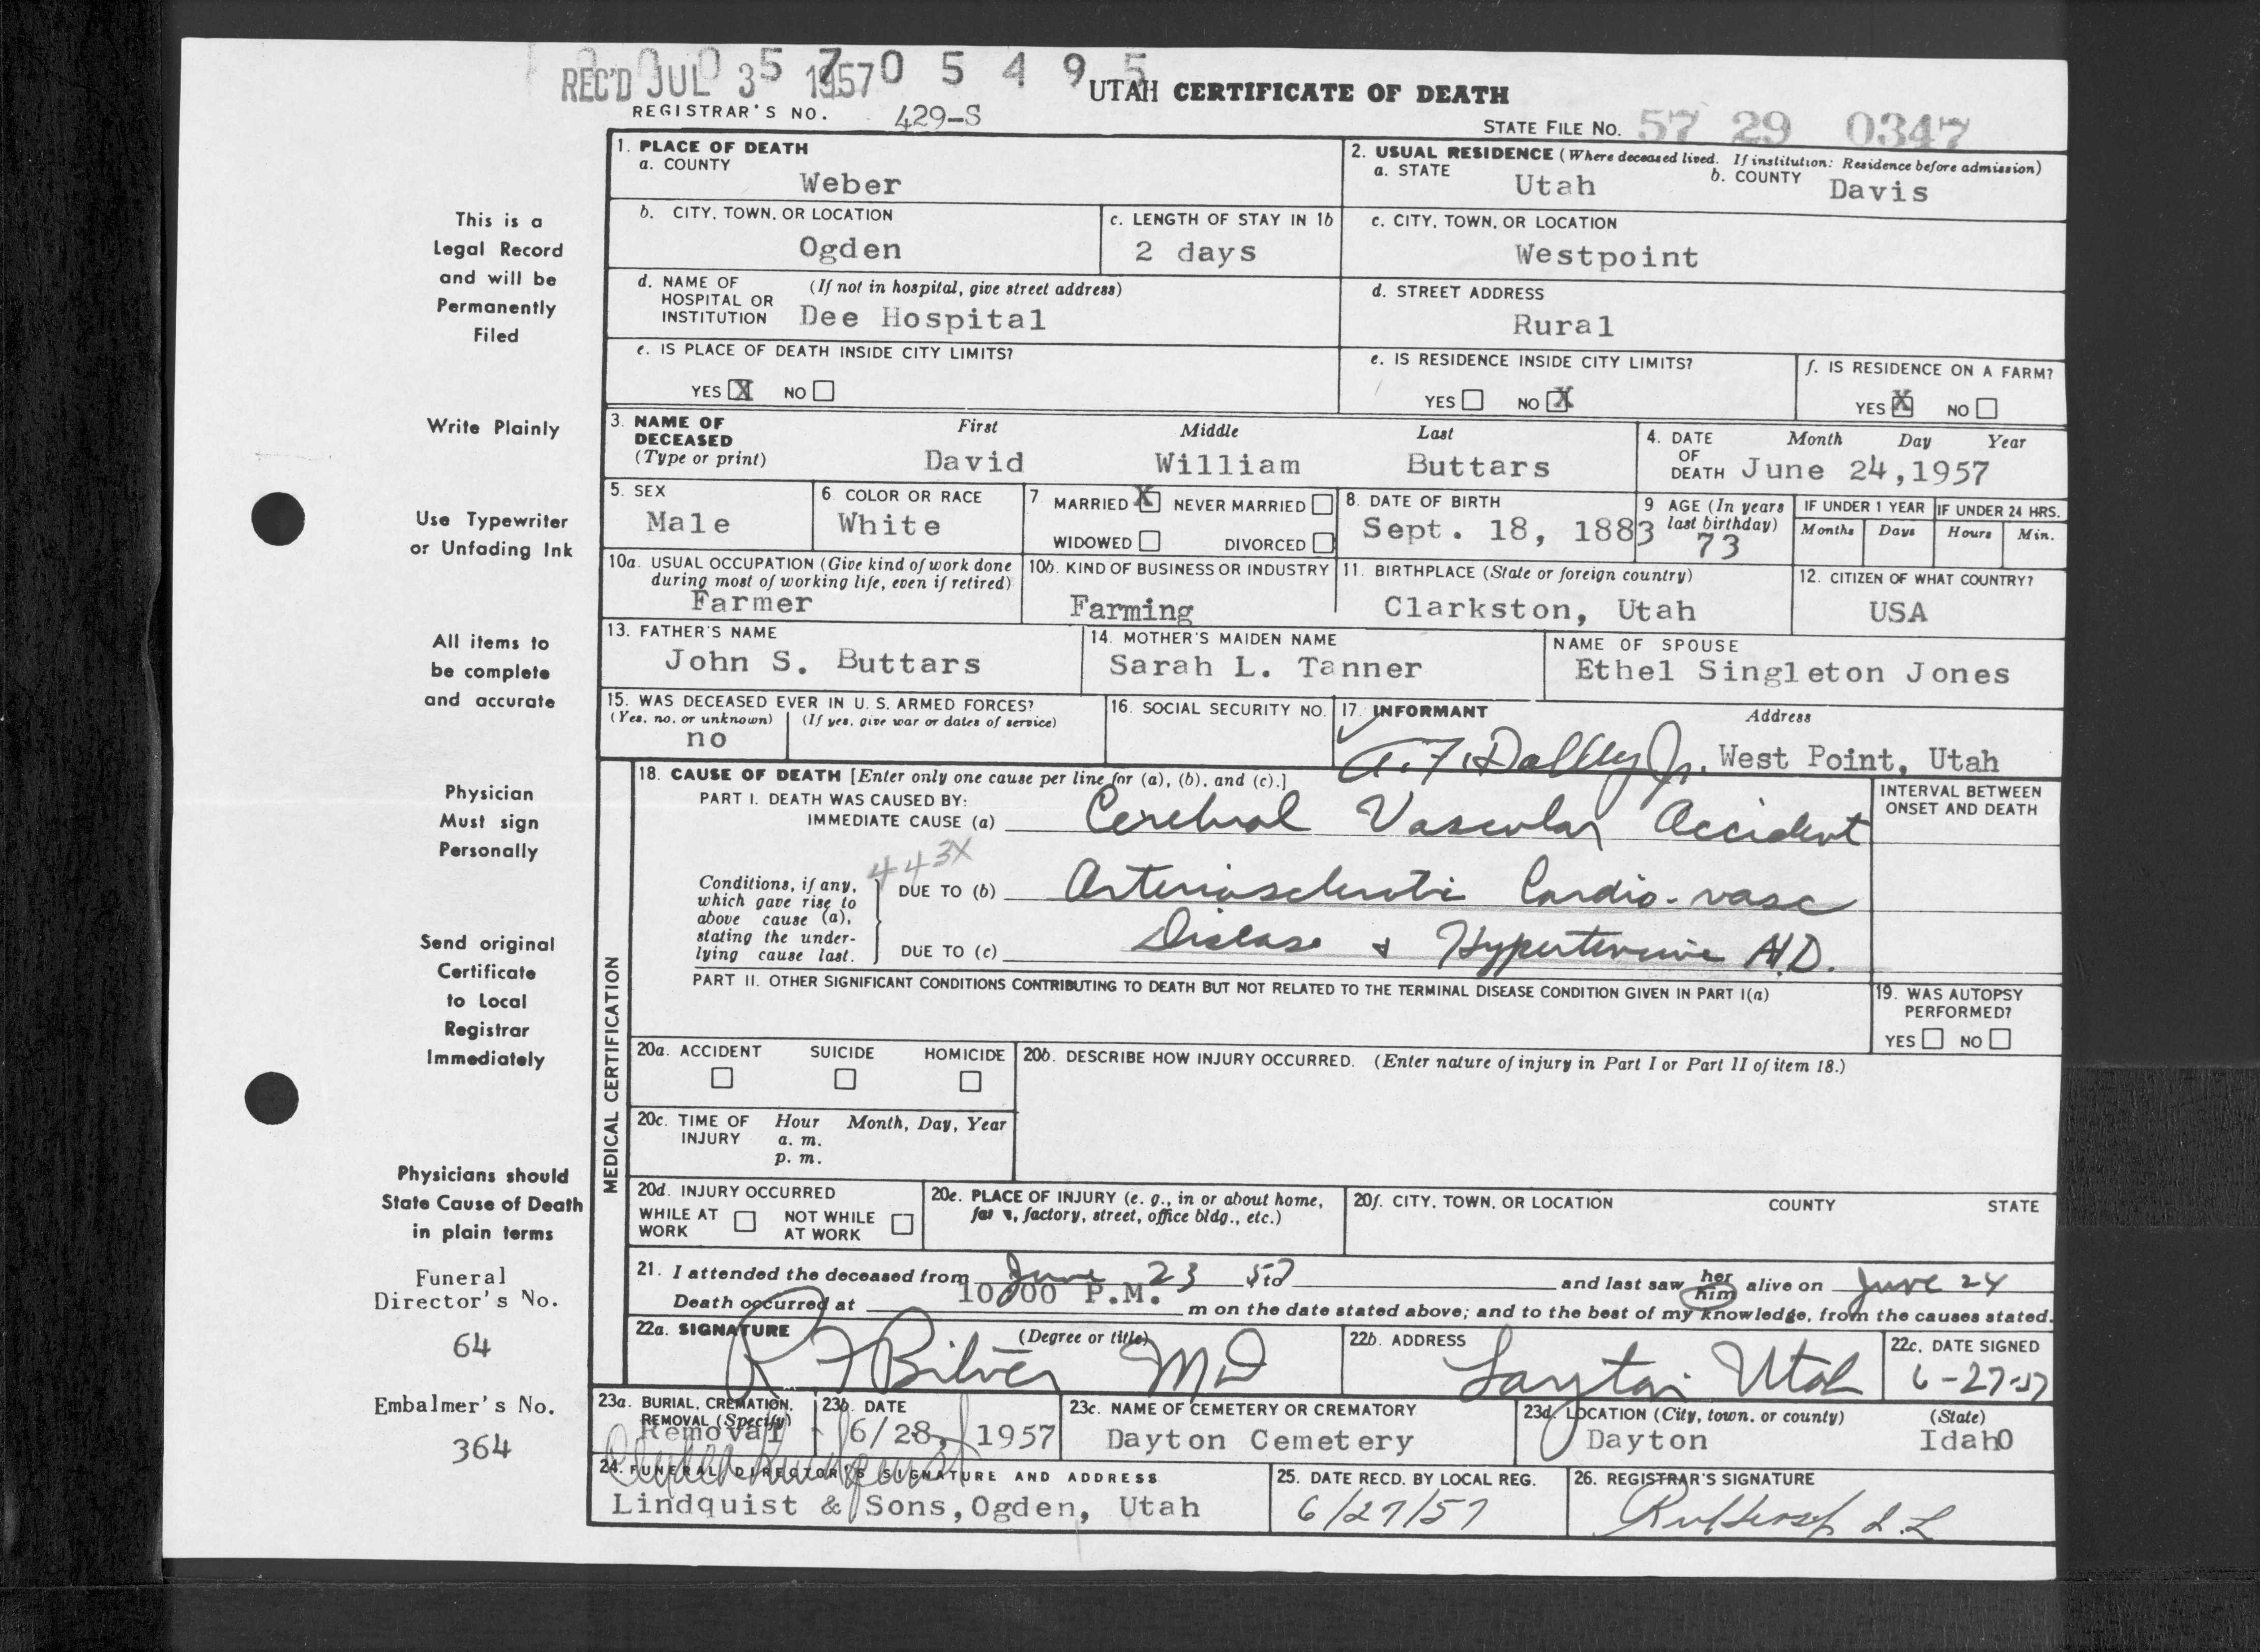 REC'D JUL 3 1957 0 5 4 9 5
UTAH CERTIFICATE OF DEATH
REGISTRAR'S NO. 429-S
STATE FILE NO. 57 29 0347
This is a
Legal Record
and will be
Permanently
Filed
Write Plainly
Use Typewriter
or Unfading Ink
All items to
be complete
and accurate
Physician
Must sign
Personally
Send original
Certificate
to Local
Registrar
Immediately
Physicians should
State Cause of Death
in plain terms
Funeral
Director's No.
64
Embalmer's No.
364
1. PLACE OF DEATH
a. COUNTY
Weber
2. USUAL RESIDENCE (Where deceased lived. If institution: Residence before admission)
a. STATE Utah b. COUNTY Davis
b. CITY, TOWN, OR LOCATION
Ogden
c. LENGTH OF STAY IN 1b
2 days
c. CITY, TOWN, OR LOCATION
Westpoint
d. NAME OF HOSPITAL OR INSTITUTION (If not in hospital, give street address)
Dee Hospital
d. STREET ADDRESS
Rural
e. IS PLACE OF DEATH INSIDE CITY LIMITS?
YES X NO
e. IS RESIDENCE INSIDE CITY LIMITS?
YES NO X
f. IS RESIDENCE ON A FARM?
YES X NO
3. NAME OF DECEASED (Type or print)
First Middle Last
David William Buttars
4. DATE OF DEATH Month Day Year
June 24,1957
5. SEX
Male
6. COLOR OR RACE
White
7 MARRIED X NEVER MARRIED
WIDOWED DIVORCED
8. DATE OF BIRTH
Sept. 18, 1883
9 AGE (In years last birthday)
73
IF UNDER 1 YEAR
Months Days
IF UNDER 24 HRS.
Hours Min.
10a. USUAL OCCUPATION (Give kind of work done during most of working life, even if retired)
Farmer
10b. KIND OF BUSINESS OR INDUSTRY
Farming
11. BIRTHPLACE (State or foreign country)
Clarkston, Utah
12. CITIZEN OF WHAT COUNTRY?
USA
13. FATHER'S NAME
John S. Buttars
14. MOTHER'S MAIDEN NAME
Sarah L. Tanner
NAME OF SPOUSE
Ethel Singleton Jones
15. WAS DECEASED EVER IN U. S. ARMED FORCES?
(Yes, no, or unknown) (If yes, give war or dates of service)
no
16. SOCIAL SECURITY NO.
17. INFORMANT Address
Jr. West Point, Utah
MEDICAL CERTIFICATION
18. CAUSE OF DEATH [Enter only one cause per line for (a), (b), and (c).]
INTERVAL BETWEEN ONSET AND DEATH
PART I. DEATH WAS CAUSED BY:
IMMEDIATE CAUSE (a) Cerebral Vascular Accident
443X
Conditions, if any, which gave rise to above cause (a), stating the underlying cause last.
DUE TO (b) Arteriosclerotic Cardio-vasc
DUE TO (c) Disease & Hypertensive H.D.
PART II. OTHER SIGNIFICANT CONDITIONS CONTRIBUTING TO DEATH BUT NOT RELATED TO THE TERMINAL DISEASE CONDITION GIVEN IN PART I(a)
19. WAS AUTOPSY PERFORMED?
YES NO
20a. ACCIDENT SUICIDE HOMICIDE
20b. DESCRIBE HOW INJURY OCCURRED. (Enter nature of injury in Part I or Part II of item 18.)
20c. TIME OF INJURY Hour Month, Day, Year
a. m.
p. m.
20d. INJURY OCCURRED
WHILE AT WORK NOT WHILE AT WORK
20e. PLACE OF INJURY (e. g., in or about home, factory, street, office bldg., etc.)
20f. CITY, TOWN, OR LOCATION COUNTY STATE
21. I attended the deceased from June 23 57 to and last saw her him alive on June 24
Death occurred at 10:00 P.M. m on the date stated above; and to the best of my knowledge, from the causes stated.
22a. SIGNATURE (Degree or title)
MD
22b. ADDRESS
Layton Utah
22c. DATE SIGNED
6-27-57
23a. BURIAL, CREMATION, REMOVAL (Specify)
Removal
23b. DATE
6/28, 1957
23c. NAME OF CEMETERY OR CREMATORY
Dayton Cemetery
23d. LOCATION (City, town, or county) (State)
Dayton Idaho
24. FUNERAL DIRECTOR'S SIGNATURE AND ADDRESS
Lindquist & Sons,Ogden, Utah
25. DATE RECD. BY LOCAL REG.
6/27/57
26. REGISTRAR'S SIGNATURE